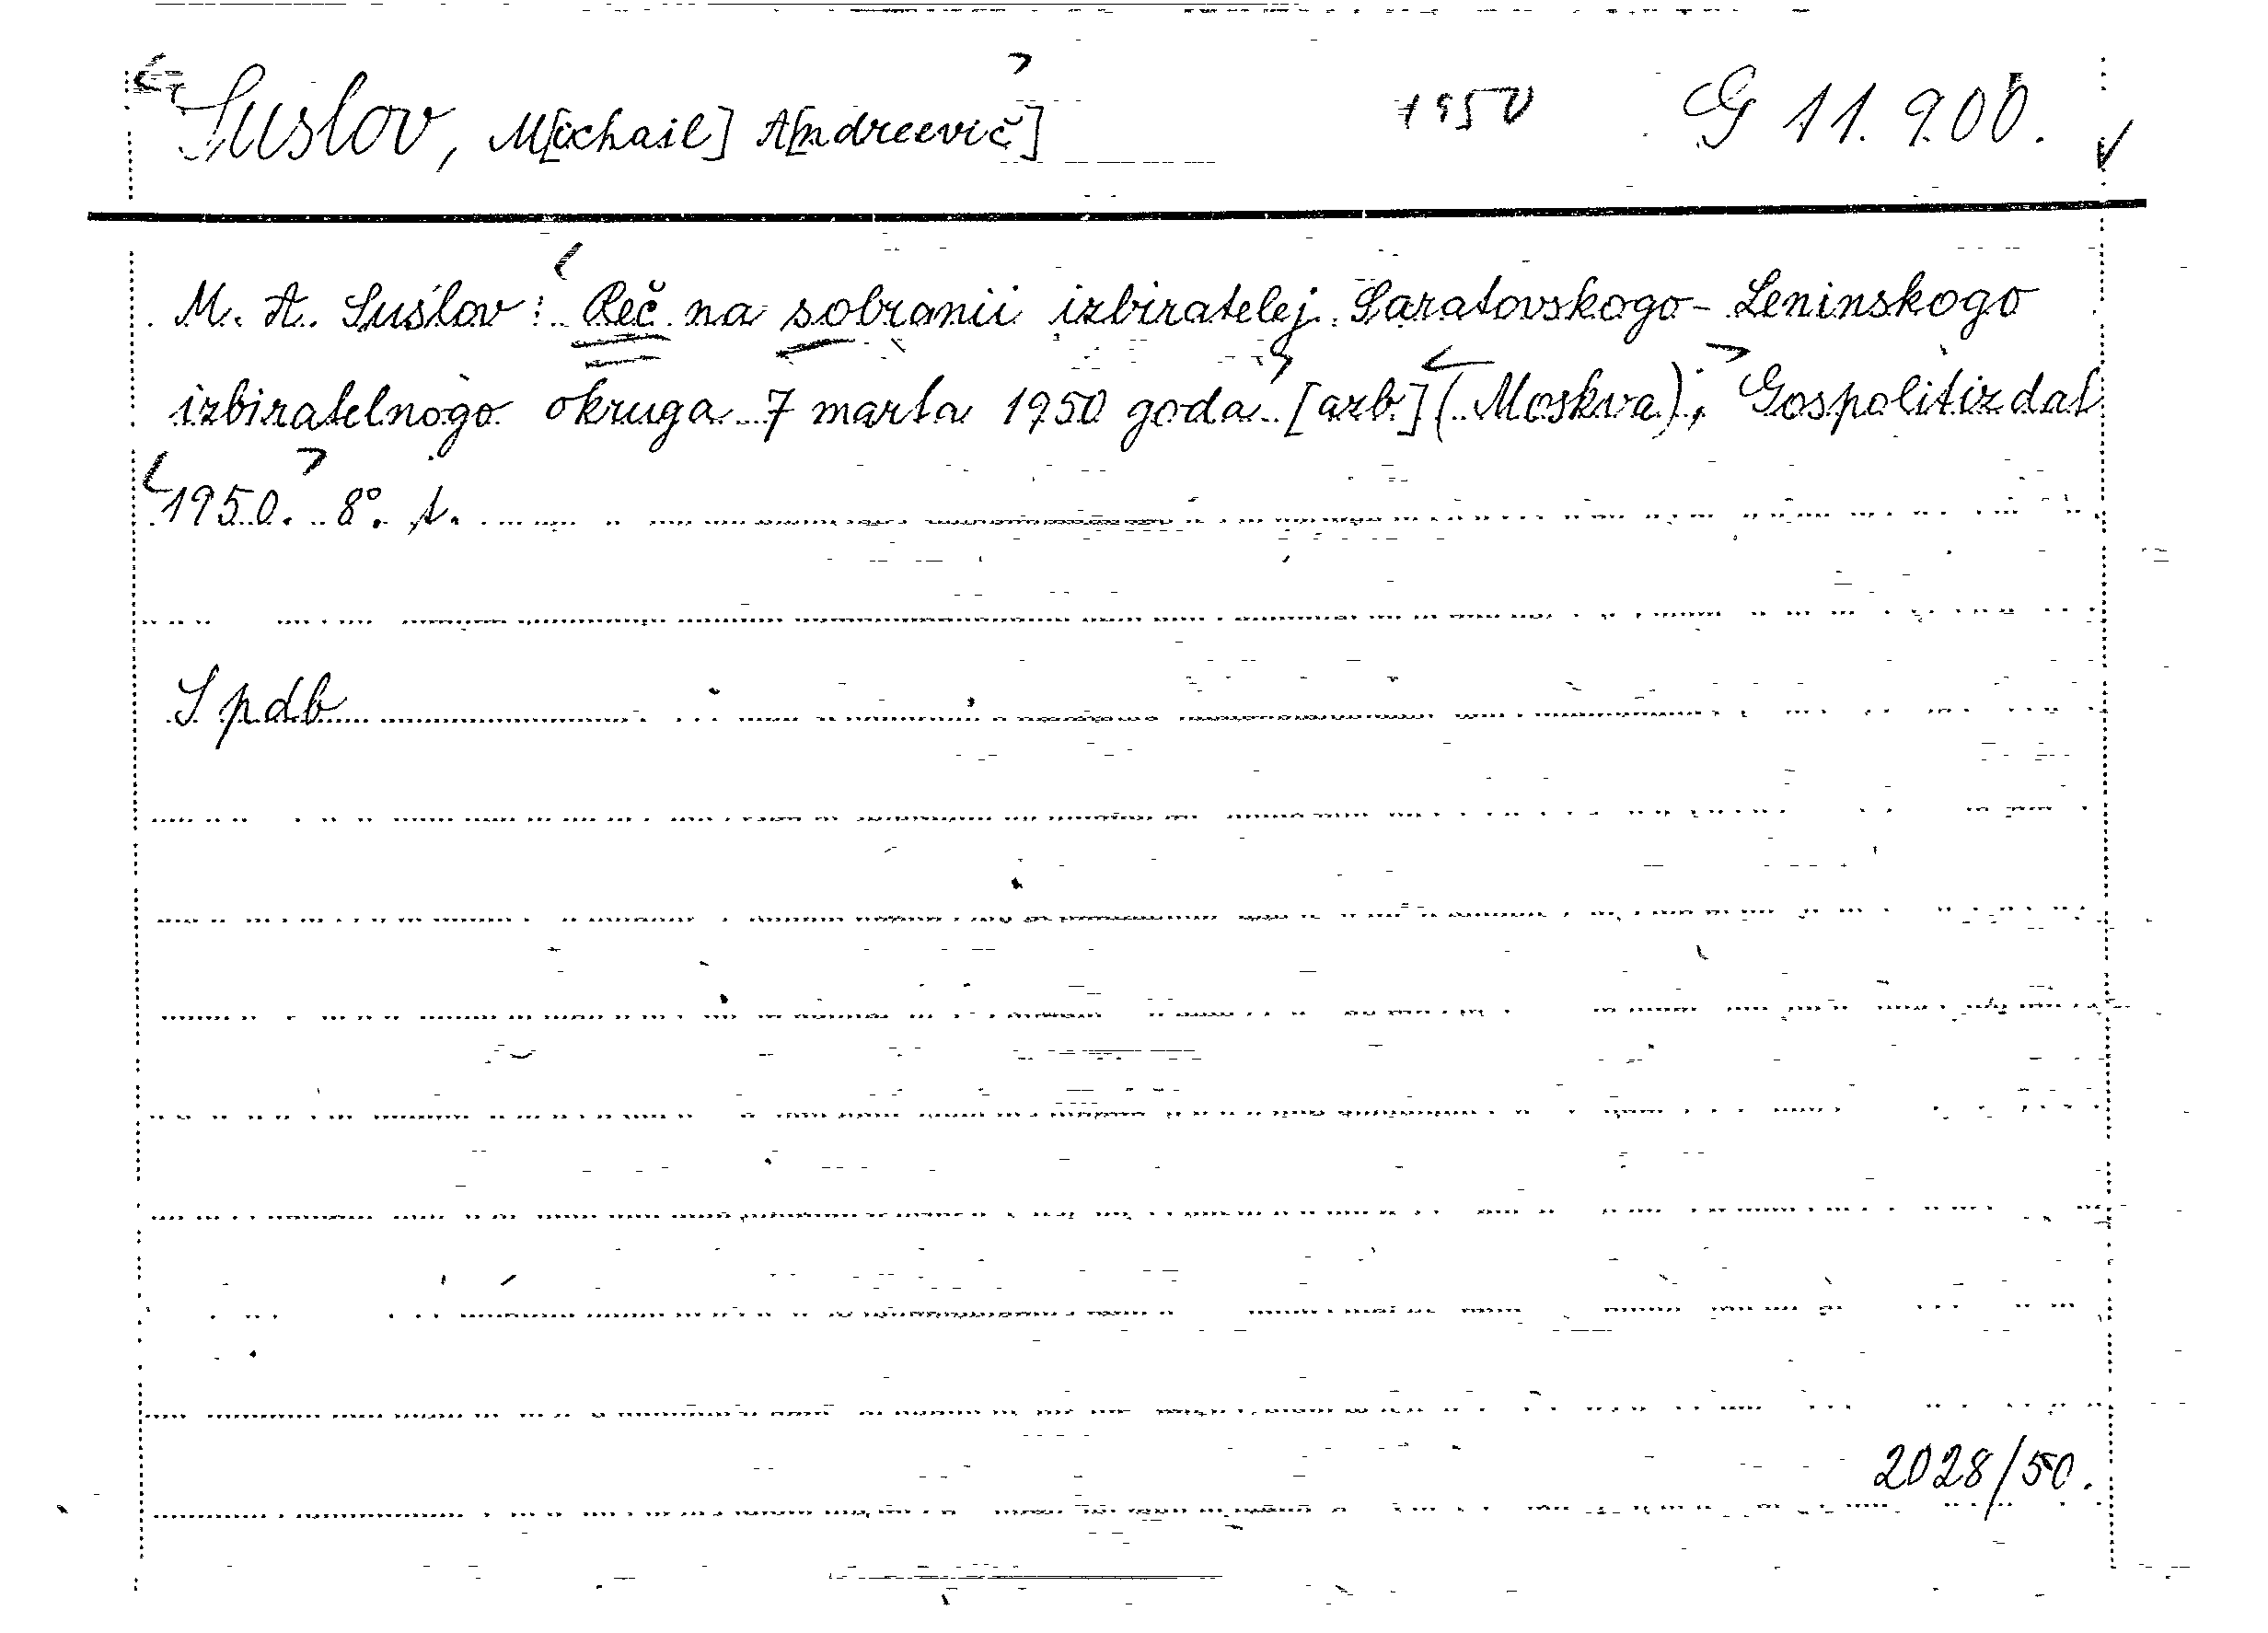 Suslov, M[ichail] A[ndreevič] 1950 G 11.900.
M. A. Suslov: Reč na sobranii izbiratelej Saratovskogo-Leninskogo
izbiratelnogo okruga 7 marta 1950 goda [azb.] (Moskva); Gospolitizdat
1950. 8°. 1.
S pdb
2028/50.